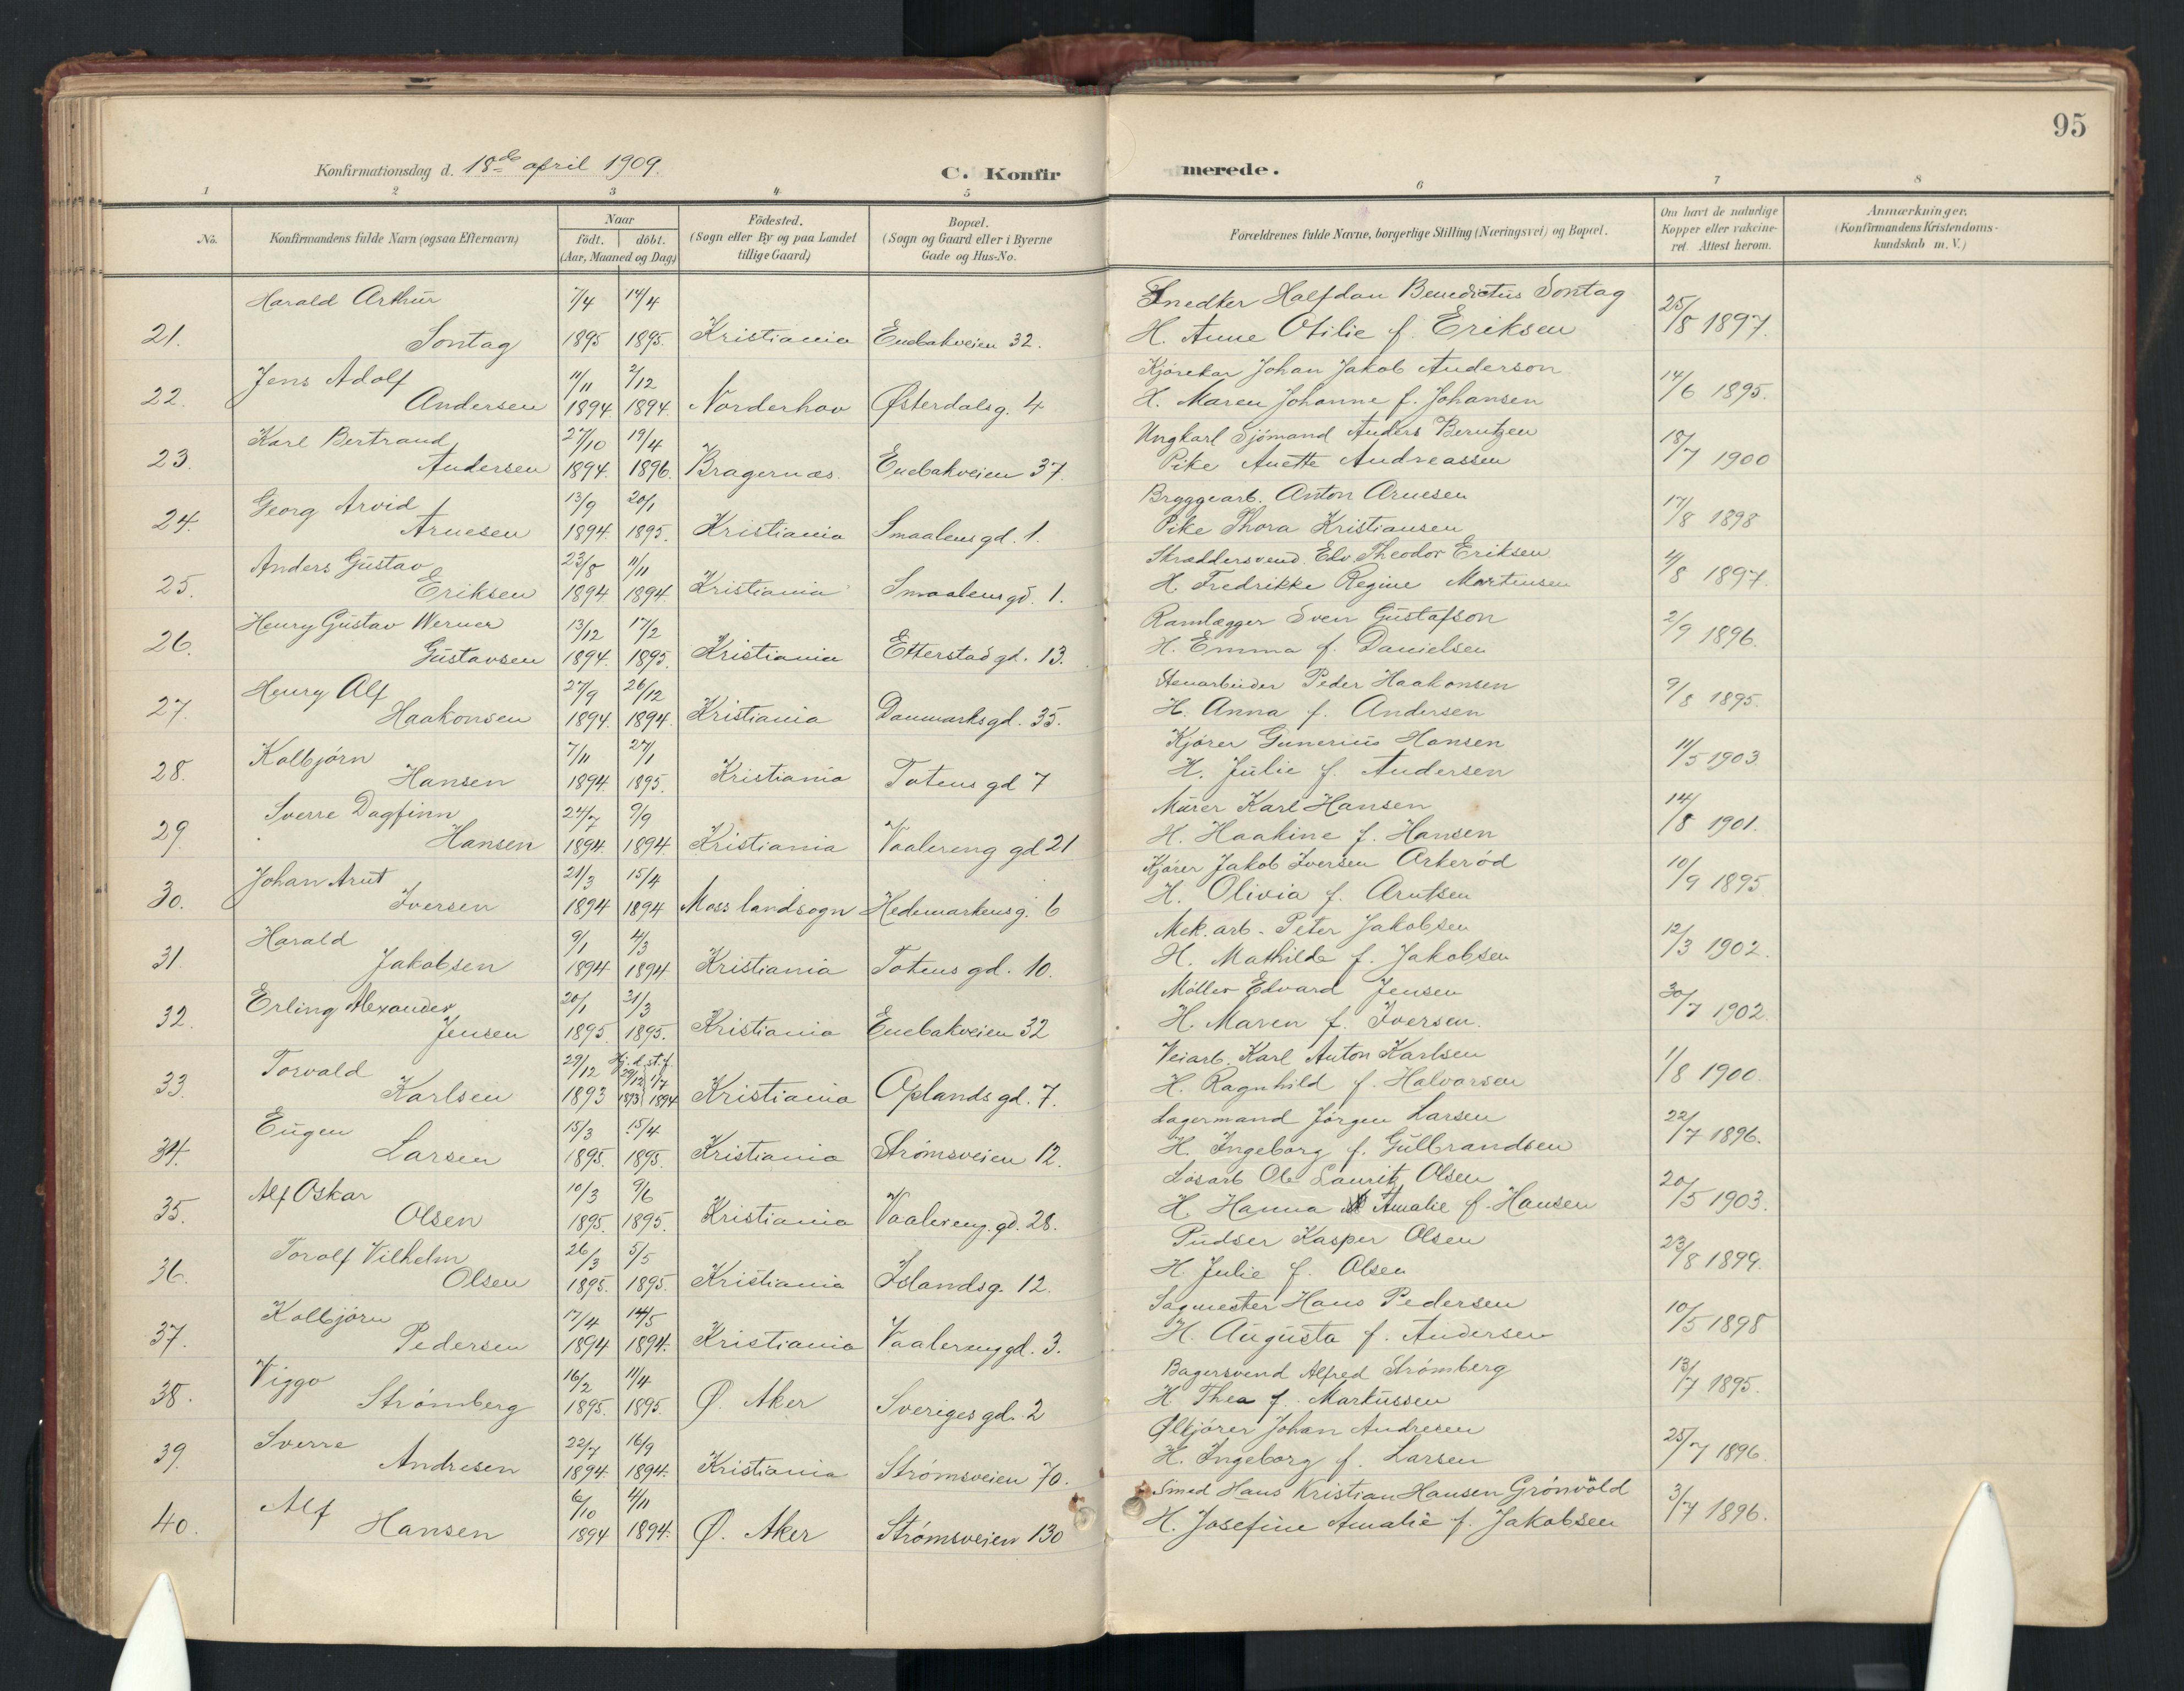 95
Konfirmationsdag d. 18de april 1909.
C. Konfirmerede.
1 2 3 4 5 6 7 8
No.
Konfirmandens fulde Navn (ogsaa Efternavn)
Naar
født. døbt.
(Aar, Maaned og Dag)
Fødested.
(Sogn eller By og paa Landet
tillige Gaard)
Bopæl.
(Sogn og Gaard eller i Byerne
Gade og Hus-No.
Forældrenes fulde Navne, borgerlige Stilling (Næringsvei) og Bopæl.
Om havt de naturlige
Kopper eller vakcine-
ret. Attest herom.
Anmærkninger.
(Konfirmandens Kristendoms-
kundskab m. V.)
Harald Arthur 7/4 14/4 Snedker Halfdan Benedictus Sontag
21. Sontag 1895 1895. Kristiania Enebakveien 32. H. Anne Otilie f. Eriksen 25/8 1897.
Jens Adolf 11/11 2/12 Kjørekar Johan Jakob Anderson
22. Andersen 1894. 1894. Norderhov Østerdalsg. 4 H. Maren Johanne f. Johansen 14/6 1895.
Karl Bertrand 27/10 19/4 Ungkarl Sjømand Anders Berntzen
23. Andersen 1894. 1896. Bragernæs. Enebakveien 37. Pike Anette Andreassen 18/7 1900
Georg Arvid 13/9 20/1 Bryggearb. Anton Arnesen
24. Arnesen 1894. 1895. Kristiania Smaalensgd. 1. Pike Thora Kristiansen 17/8 1898
Anders Gustav 23/8 11/11 Skræddersvend Edv. Theodor Eriksen
25. Eriksen 1894 1894. Kristiania Smaalensgd. 1. H. Fredrikke Regine Mortensen 4/8 1897.
Henry Gustav Werner 13/12 17/2 Ramlægger Sven Gustafson
26. Gustavsen 1894. 1895. Kristiania Etterstadgd. 13. H. Emma f. Danielsen 2/9 1896.
Henry Alf 27/9 26/12 Stenarbeider Peder Haakonsen
27. Haakonsen 1894. 1894. Kristiania Danmarksgd. 35. H. Anna f. Andersen 9/8 1895.
Kolbjørn 7/11 27/1 Kjører Gunerius Hansen
28. Hansen 1894. 1895. Kristiania Totensgd 7 H. Julie f. Andersen 11/5 1903
Sverre Dagfinn 24/7 9/9 Murer Karl Hansen
29. Hansen 1894. 1894. Kristiania Vaalereng gd 21 H. Haakine f. Hansen 14/8 1901.
Johan Arnt 21/3 15/4 Kjører Jakob Iversen Arkerød
30. Iversen 1894 1894 Moss landsogn Hedemarkensg. 6 H. Olivia f. Arntsen 10/9 1895
Harald 9/1 4/3 Mek. arb. Peter Jakobsen
31. Jakobsen 1894 1894 Kristiania Totensgd. 10. H. Mathilde f. Jakobsen 12/3 1902.
Erling Alexander 20/1 31/3 Møller Edvard Jensen
32. Jensen 1895. 1895. Kristiania Enebakveien 32 H. Maren f. Iversen. 30/7 1902.
Torvald 29/12 Hj.d. st.f. 29/12 1/7 Veiarb. Karl Anton Karlsen
33. Karlsen 1893 1893 1894 Kristiania Oplandsgd. 7. H. Ragnhild f. Halvorsen 1/8 1900.
Eugen 15/3 15/4 Lagermand Jørgen Larsen
34. Larsen 1895. 1895. Kristiania Strømsveien 12. H. Ingeborg f. Gulbrandsen 22/7 1896.
Alf Oskar 10/3 9/6 Løsarb Ole Lauritz Olsen
35. Olsen 1895. 1895. Kristiania Vaalereng. gd. 28. H. Hanna Amalie f. Hansen 20/5 1903.
Toralf Vilhelm 26/3 5/5 Pudser Kasper Olsen
36. Olsen 1895. 1895. Kristiania Islandsg. 12. H. Julie f. Olsen 23/8 1899.
Kolbjørn 17/4 14/5 Sagmester Hans Pedersen
37. Pedersen 1894 1894. Kristiania Vaalerenggd. 3. H. Augusta f. Andersen 10/5 1898
Viggo 16/2 11/4 Bagersvend Alfred Strømberg
38. Strømberg 1895. 1895. Ø. Aker Sverigesgd. 2 H. Thea f. Markussen 13/7 1895.
Sverre 22/7 16/9 Ølkjører Johan Andresen
39. Andresen 1894. 1894. Kristiania Strømsveien 70. H. Ingeborg f. Larsen 25/7 1896.
Alf 6/10 4/11 Smed Hans Kristian Hansen Grönvöld
40. Hansen 1894 1894. Ø. Aker Strømsveien 130 H. Josefine Amalie f. Jakobsen 3/7 1896.